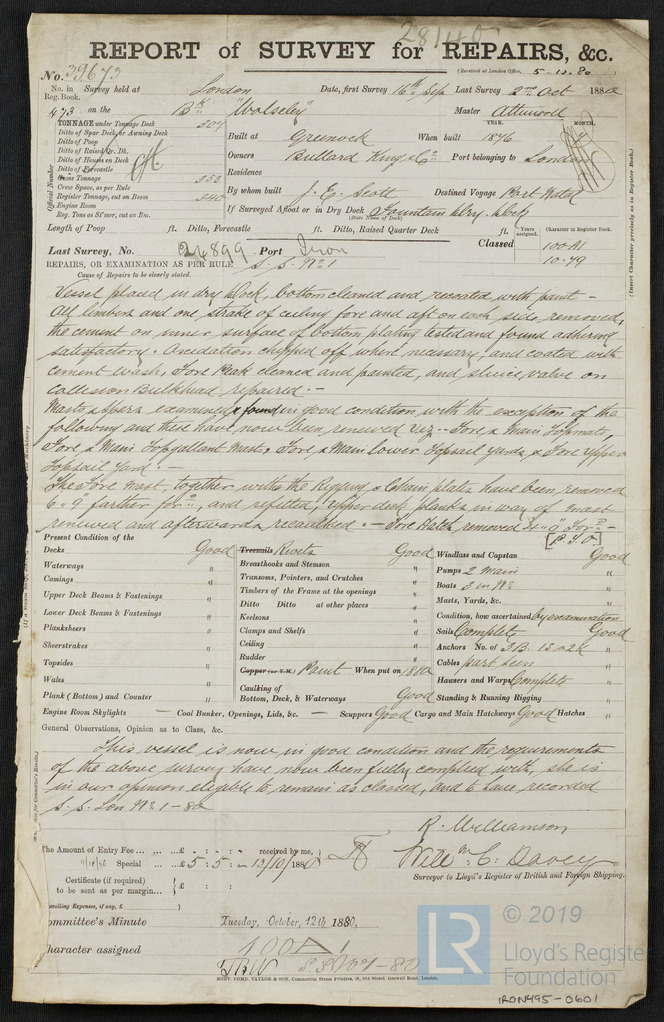 28140
REPORT of SURVEY for REPAIRS, &c.
(Received at London Office, 5-10-80)
No. 39673
No. in Reg. Book. Survey held at London Date, first Survey 16th Sep Last Survey 2nd Oct 1880
473 on the Bk "Wolseley" Master Attwood
TONNAGE under Tonnage Deck 304
Ditto of Spar Deck or Awning Deck
Ditto of Poop
Ditto of Raised Qr. Dk.
Ditto of Houses on Deck
Ditto of Forecastle
Gross Tonnage 353
Crew Space, as per Rule
Register Tonnage, cut on Beam 340
Engine Room
Reg. Tons as St'mer, cut on Bm.
Official Number
YEAR. MONTH.
Built at Greenock When built 1876
Owners Bullard King & Co Port belonging to London
Residence
By whom built J. E. Scott Destined Voyage Port Natal
If Surveyed Afloat or in Dry Dock Fountain Dry Dock
(State Name of Dock)
Length of Poop ft. Ditto, Forecastle ft. Ditto, Raised Quarter Deck ft.
Years assigned. Character in Register Book.
Classed 100A1
10.79
(Insert Character precisely as in Register Book.)
Last Survey, No. 24899 Port Iron
REPAIRS, OR EXAMINATION AS PER RULE S. S. No 1
Cause of Repairs to be clearly stated.
Vessel placed in dry dock, bottom cleaned and recoated with paint -
All limbers and one strake of ceiling fore and aft on each side removed,
the cement on inner surface of bottom plating tested and found adhering
satisfactory. Oxidation chipped off where necessary, and coated with
cement wash, Fore Peak cleaned and painted, and sluice valve on
Collision Bulkhead repaired. -
Masts & spars examined & found in good condition with the exception of the
following and these have now been renewed viz - Fore & Main Topmasts,
Fore & Main Topgallant Masts, Fore & Main lower Topsail Yards, & Fore Upper
Topsail Yard. -
The Fore Mast, together with the Rigging & Chain plates have been removed
6' 9" farther for'd, and refitted, Upper deck planks in way of mast
renewed and afterwards recaulked. - Fore Hatch removed For'd -
[P.T.O]
Present Condition of the
Decks Good
Waterways "
Comings "
Upper Deck Beams & Fastenings "
Lower Deck Beams & Fastenings "
Planksheers "
Sheerstrakes "
Topsides "
Wales "
Plank (Bottom) and Counter "
Treenails Rivets Good
Breasthooks and Stemson "
Transoms, Pointers, and Crutches "
Timbers of the Frame at the openings "
Ditto Ditto at other places "
Keelsons "
Clamps and Shelfs "
Ceiling "
Rudder "
Copper (or Y.M.) Paint When put on 1880
Caulking of
Bottom, Deck, & Waterways Good
Windlass and Capstan Good
Pumps 2 Main "
Boats 3 in No "
Masts, Yards, &c. "
Condition, how ascertained by examination
Sails Complete Good
Anchors No. of 3B. 1S & 2K "
Cables part seen "
Hawsers and Warps Complete "
Standing & Running Rigging "
Engine Room Skylights — Coal Bunker, Openings, Lids, &c. — Scuppers Good Cargo and Main Hatchways Good Hatches "
General Observations, Opinion as to Class, &c.
This vessel is now in good condition and the requirements
of the above survey have now been fully complied with, she is
in our opinion eligible to remain as classed, and to have recorded
S. S. Lon No 1-80
R. Williamson
Willm C. Davey
Surveyor to Lloyd's Register of British and Foreign Shipping.
The Amount of Entry Fee ... ... £ : : received by me,
Special ... £ 5 : 5 : - 13/10/1880
Certificate (if required) to be sent as per margin... £ : :
Travelling Expenses, if any, £
Committee's Minute Tuesday, October, 12th 1880.
Character assigned 100A1
S.S. No 1-80
ROBT. EDMD. TAYLOR & SON, Commercial Steam Printers, 19, Old Street, Goswell Road, London.
LR
© 2019
Lloyd's Register
Foundation
IRON495-0601